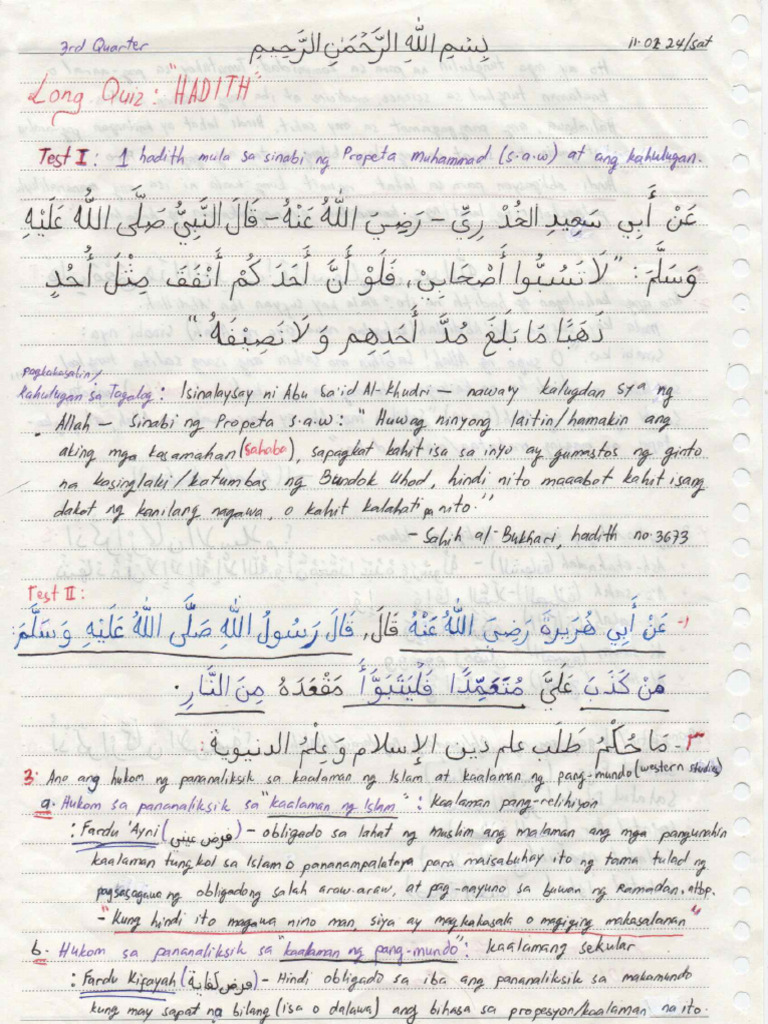 3rd Quarter بِسْمِ اللّٰهِ الرَّحْمَٰنِ الرَّحِيمِ 11.02.24/sat
Long Quiz: "HADITH"
Test I: 1 hadith mula sa sinabi ng Propeta Muhammad (s.a.w) at ang kahulugan.
عَنْ أَبِي سَعِيدِ الخُدْرِيِّ – رَضِيَ اللّٰهُ عَنْهُ – قَالَ النَّبِيُّ صَلَّى اللّٰهُ عَلَيْهِ
وَسَلَّمَ: "لَا تَسُبُّوا أَصْحَابِيْ، فَلَوْ أَنَّ أَحَدَكُمْ أَنْفَقَ مِثْلَ أُحُدٍ
ذَهَبًا مَا بَلَغَ مُدَّ أَحَدِهِم وَلَا نَصِيْفَهُ"
pagkakasalin/
Kahulugan sa Tagalog: Isinalaysay ni Abu Sa'id Al-Khudri – nawa'y kalugdan sya ng
Allah – sinabi ng Propeta s.a.w: "Huwag ninyong laitin/hamakin ang
aking mga kasamahan (sahaba), sapagkat kahit isa sa inyo ay gumastos ng ginto
na kasinglaki/katumbas ng Bundok Uhod, hindi nito maaabot kahit isang
dakot ng kanilang nagawa, o kahit kalahati pa nito."
– Sahih al-Bukhari, hadith no. 3673
Test II:
١- عَنْ أَبِي هُرَيرَةَ رَضِيَ اللّٰهُ عَنْهُ قَالَ، قَالَ رَسُولُ اللّٰهِ صَلَّى اللّٰهُ عَلَيْهِ وَسَلَّمَ:
مَنْ كَذَبَ عَلَيَّ مُتَعَمِّدًا فَلْيَتَبَوَّأْ مَقْعَدَهُ مِنَ النَّارِ.
٣- مَا حُكْمُ طَلَب علم دين الإسلام وَعِلْمُ الدنيوية:
3. Ano ang hukom ng pananaliksik sa kaalaman ng Islam at kaalaman ng pang-mundo (western studies)
a. Hukom sa pananaliksik sa "kaalaman ng Islam": kaalaman pang-relihiyon
: Fardu 'Ayni (فرض عيني) – obligado sa lahat ng Muslim ang malaman ang mga pangunahin
kaalaman tungkol sa Islam o pananampalataya para maisabuhay ito ng tama tulad ng
pagsasagawa ng obligadong salah araw-araw, at pag-aayuno sa buwan ng Ramadan, atbp.
– "Kung hindi ito magawa nino man, siya ay magkakasala o magiging makasalanan"
b. Hukom sa pananaliksik sa "kaalaman ng pang-mundo": kaalamang sekular
: Fardu Kifayah (فرض كفاية) – Hindi obligado sa iba ang pananaliksik sa makamundo
kung may sapat na bilang (isa o dalawa) ang bihasa sa propesyon/kaalaman na ito.